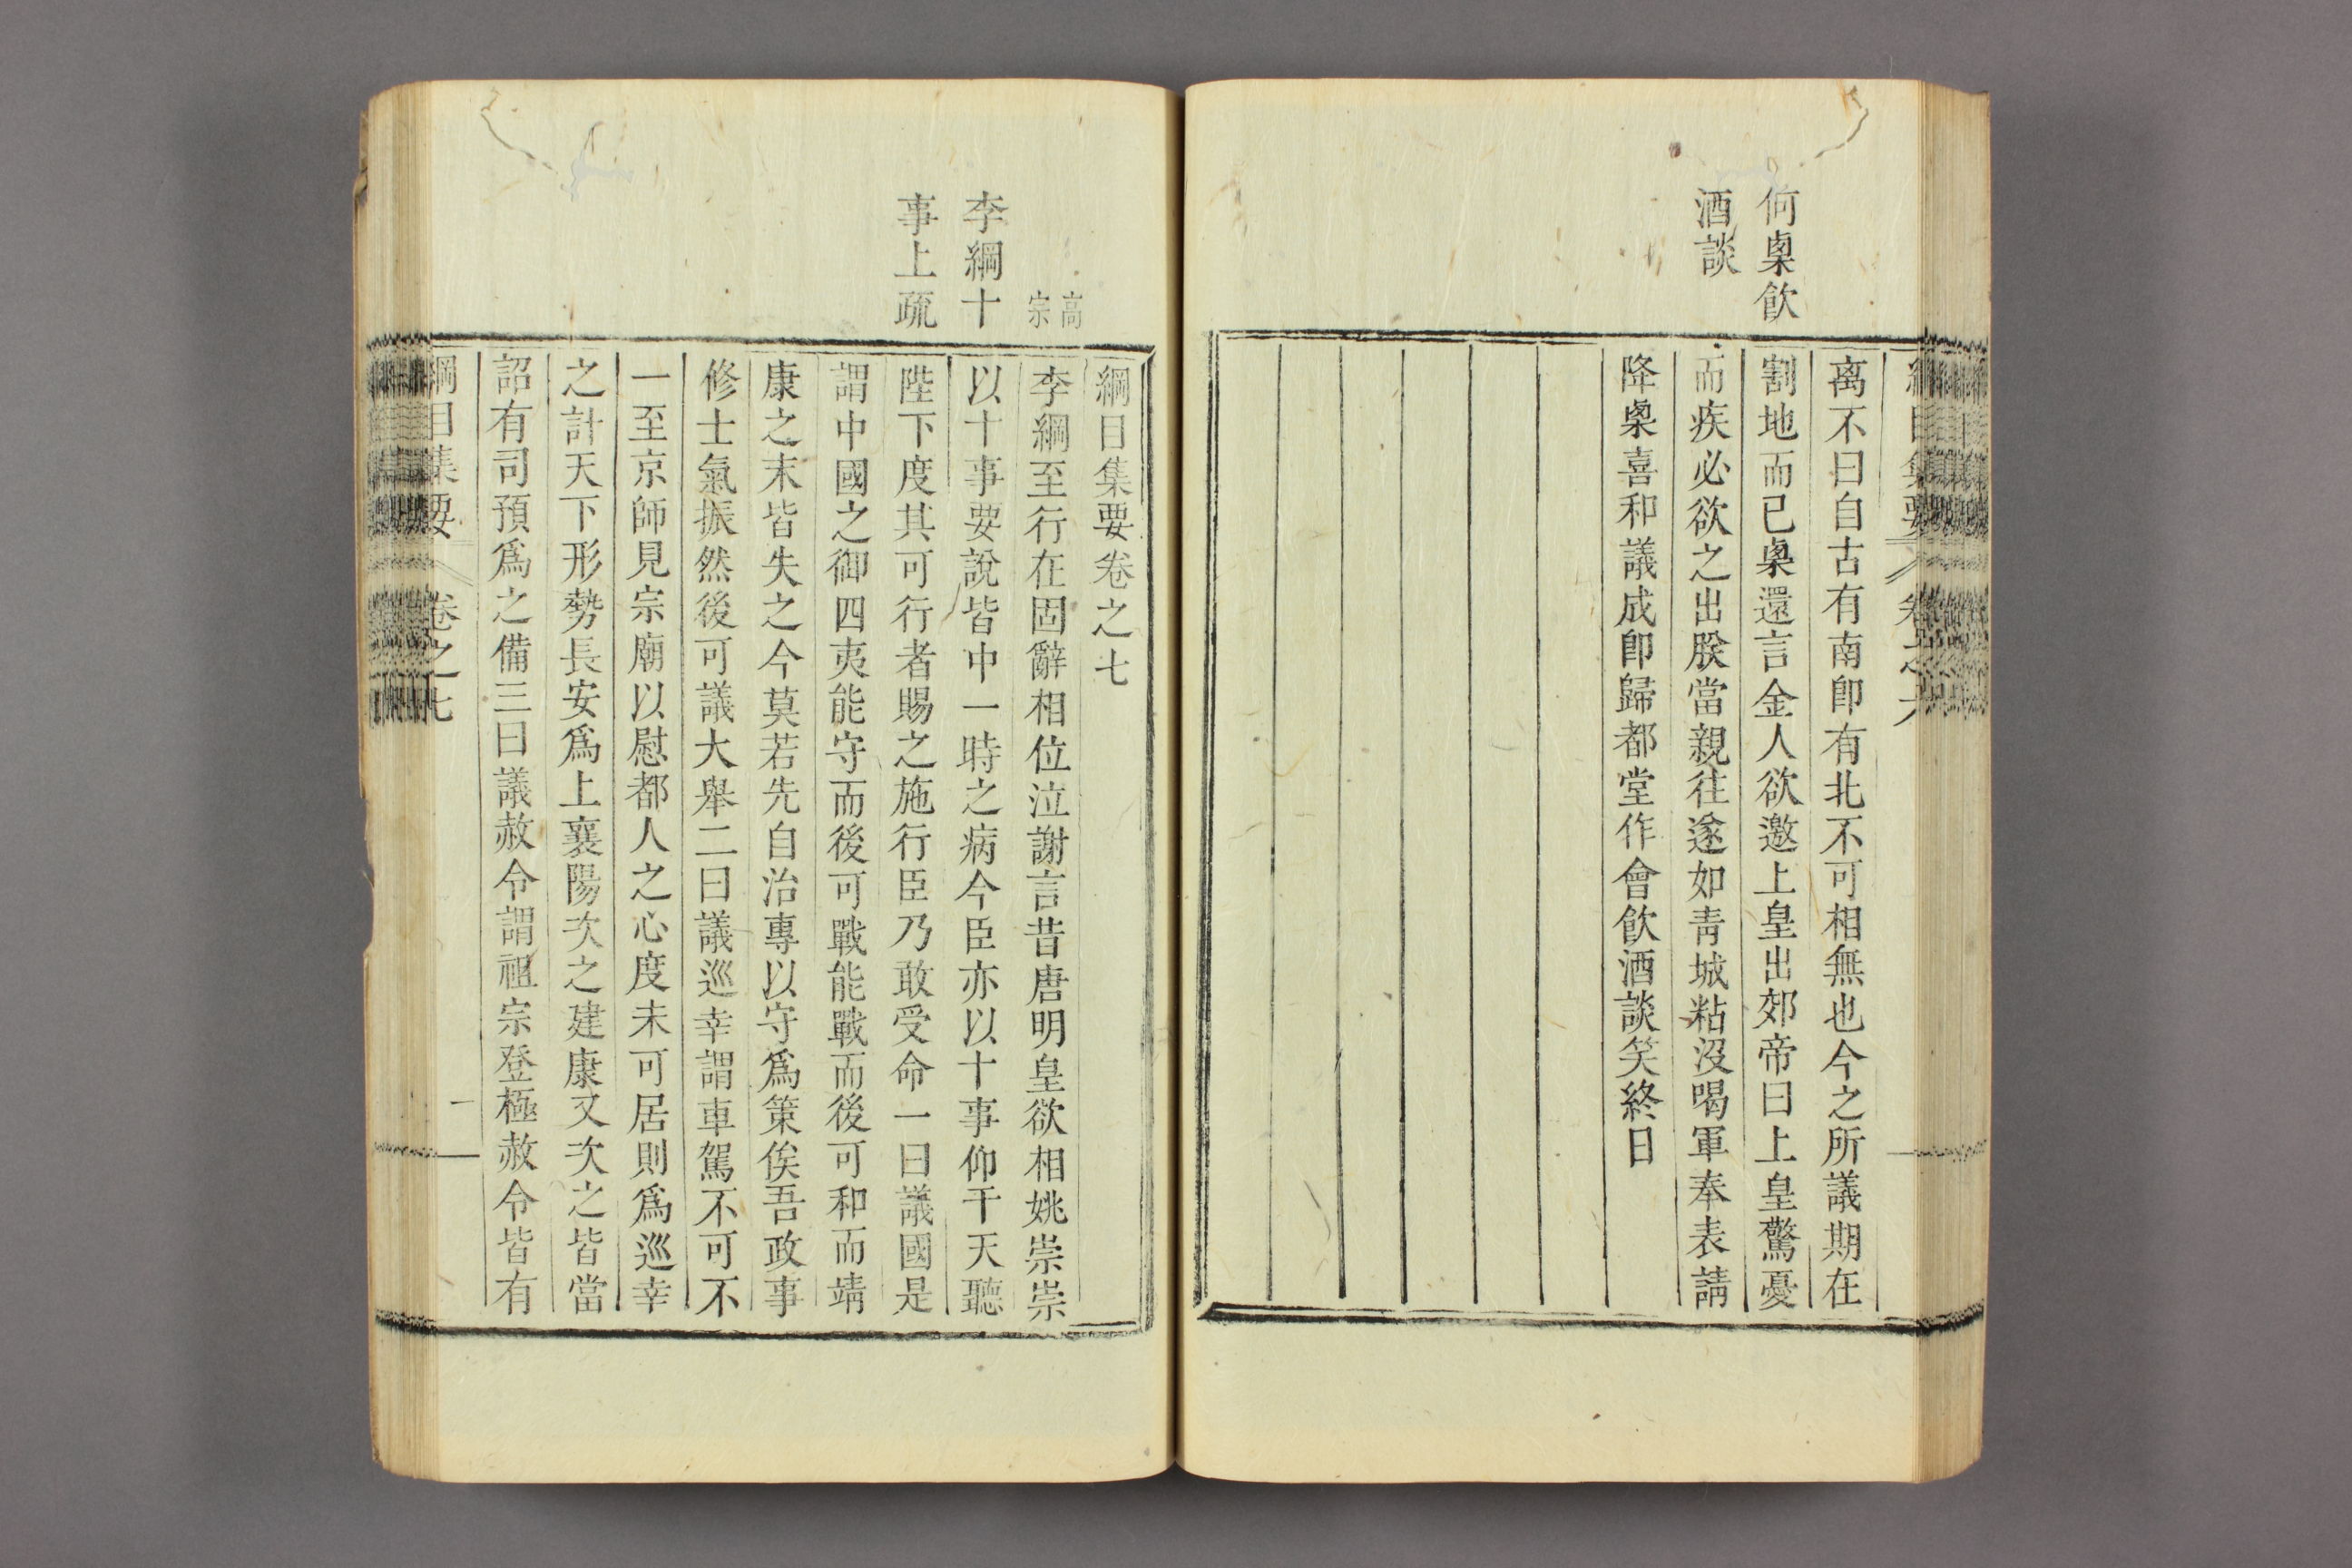 何㮚飲
酒談
綱目集要 卷之六
离不曰自古有南卽有北不可相無也今之所議期在
割地而已㮚還言金人欲邀上皇出郊帝曰上皇驚憂
而疾必欲之出朕當親往遂如青城粘没喝軍奉表請
降㮚喜和議成卽歸都堂作會飲酒談笑終日
高
宗
李綱十
事上疏
綱目集要卷之七
李綱至行在固辭相位泣謝言昔唐明皇欲相姚崇崇
以十事要說皆中一時之病今臣亦以十事仰干天聽
陛下度其可行者賜之施行臣乃敢受命一曰議國是
謂中國之御四夷能守而後可戰能戰而後可和而靖
康之末皆失之今莫若先自治專以守爲策俟吾政事
修士氣振然後可議大舉二曰議巡幸謂車駕不可不
一至京師見宗廟以慰都人之心度未可居則爲巡幸
之計天下形勢長安爲上襄陽次之建康又次之皆當
詔有司預爲之備三曰議赦令謂祖宗登極赦令皆有
綱目集要 卷之七 一